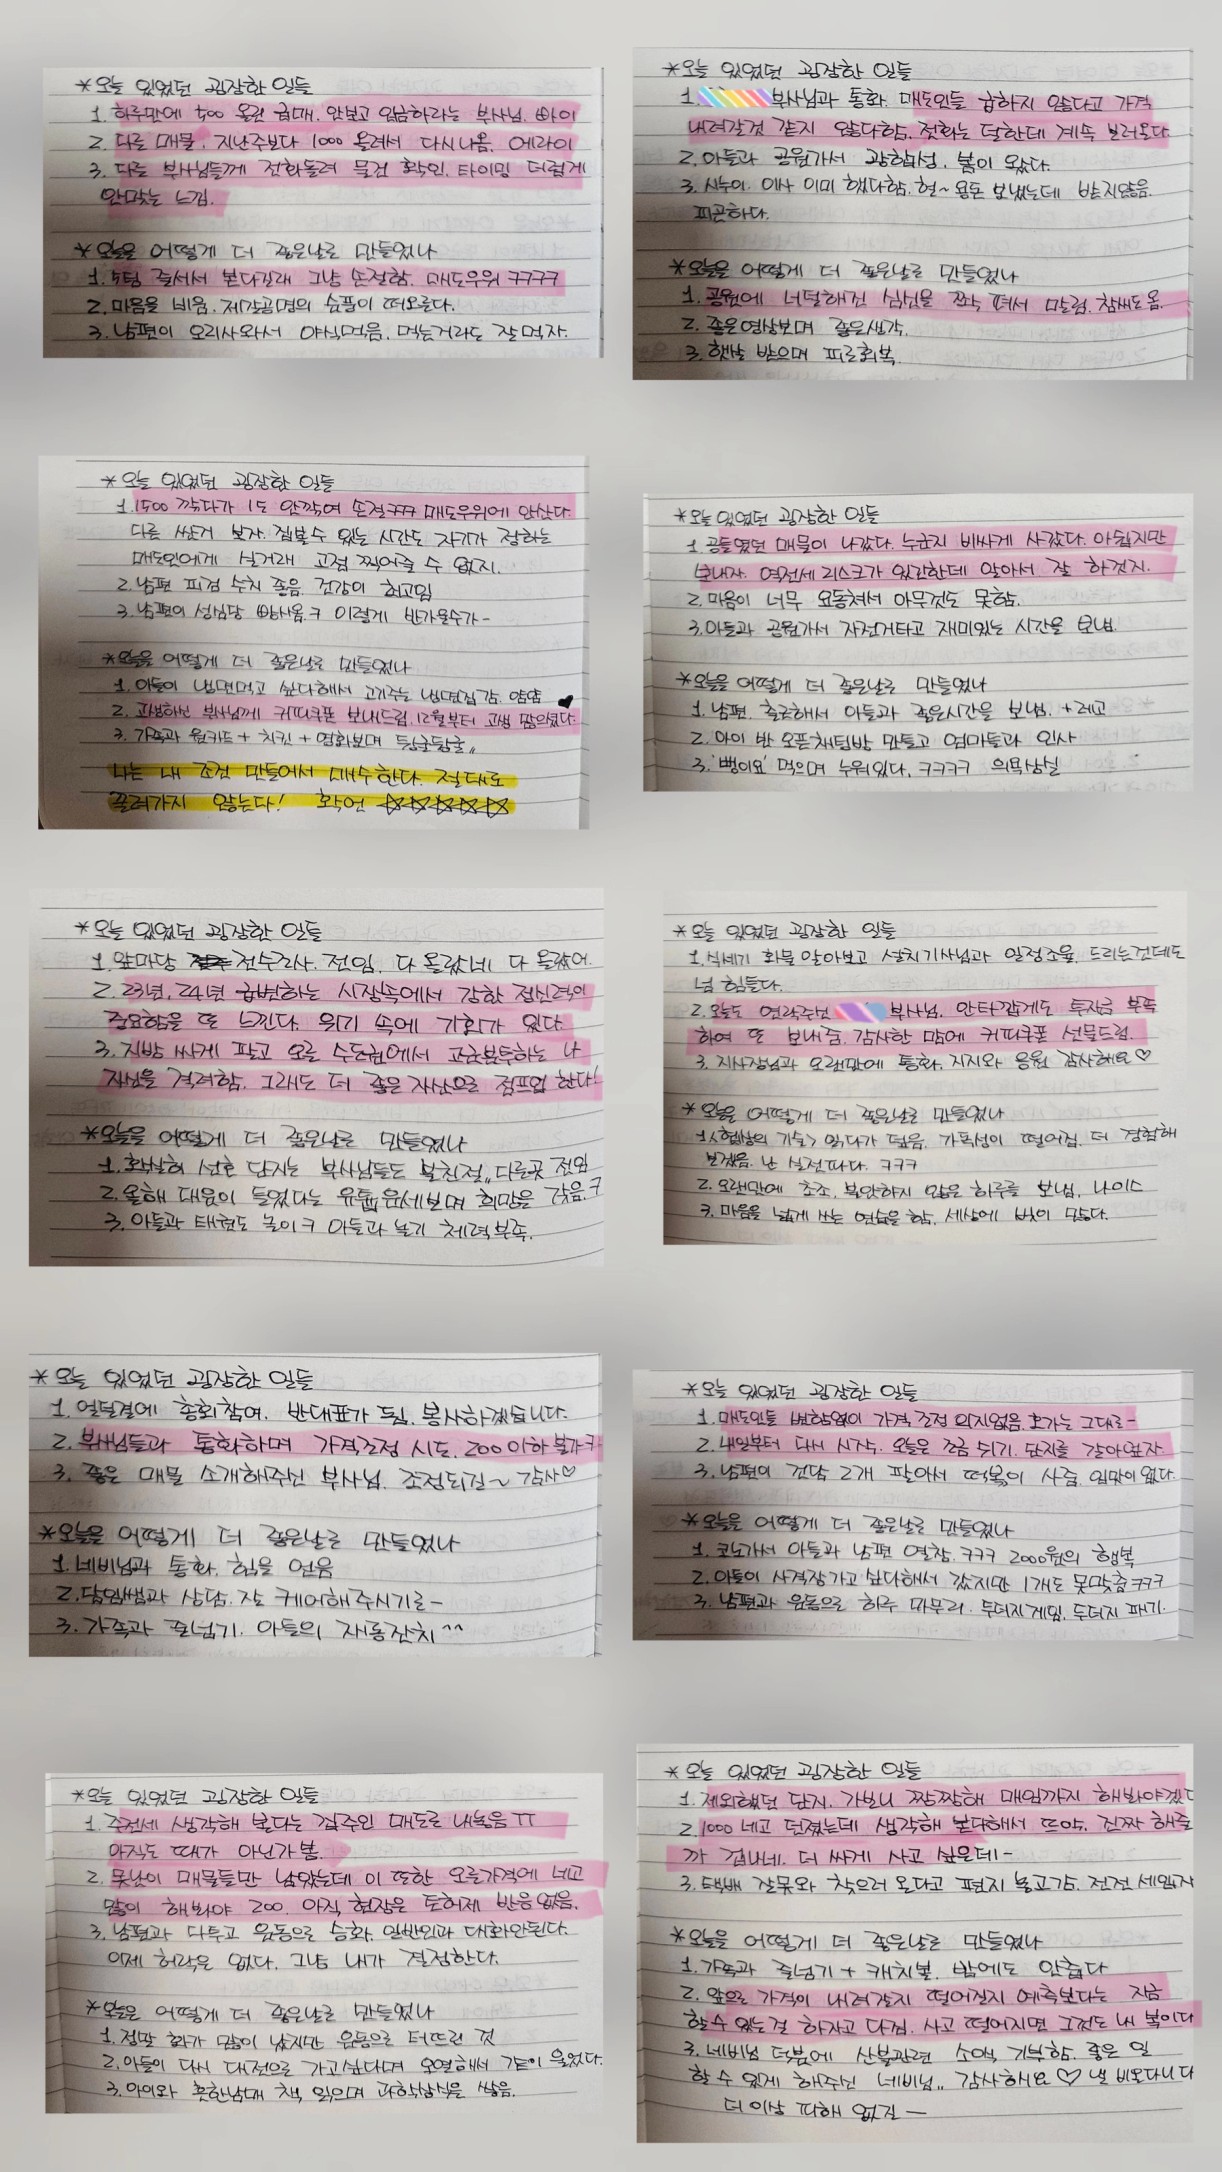 *오늘 있었던 굉장한 일들
1. 하루만에 500 올린 급매. 안보고 입금하라는 부사님. 아이
2. 다른 매물. 지난주보다 1000 올려서 다시 나옴. 에라이
3. 다른 부사님들께 전화돌려 물건 확인. 타이밍 더럽게
안맞는 느낌.
*오늘을 어떻게 더 좋은날로 만들었나
1. 5팀 줄서서 본다길래 그냥 손절함. 매도우위 ㅋㅋㅋㅋ
2. 마음을 비움. 제갈공명의 슬픔이 떠오른다.
3. 남편이 오리사와서 야식먹음. 먹는거라도 잘먹자.
*오늘 있었던 굉장한 일들
1. 부사님과 통화. 매도인들 급하지 않다고 가격
내려갈것 같지 않다함. 전화는 덜한데 계속 보러온다
2. 아들과 공원가서 광합성. 봄이 왔다.
3. 시누이. 이사 이미 했다함. 헐~ 용돈 보냈는데 받지않음.
피곤하다.
*오늘을 어떻게 더 좋은날로 만들었나
1. 공원에 너덜해진 심신을 쫙 펴서 말림. 참새도 옴.
2. 좋은영상보며 좋은생각.
3. 햇살 받으며 피로회복.
*오늘 있었던 굉장한 일들
1. 1500 깎다가 1도 안깎여 손절ㅋㅋㅋ 매도우위에 안산다.
다른 싼거 보자. 집볼수 있는 시간도 자기가 정하는
매도인에게 실거래 고점 찍어줄 수 없지.
2. 남편 피검 수치 좋음. 건강이 최고임
3. 남편이 성심당 빵사옴.ㅋ 이렇게 반가울수가-
*오늘을 어떻게 더 좋은날로 만들었나
1. 아들이 냉면먹고 싶다해서 고기주는 냉면집감. 얌얌
2. 고생하신 부사님께 커피쿠폰 보내드림. 12월부터 고생 많으셨다.
3. 가족과 원카드 + 치킨 + 영화보며 뒹굴뒹굴,,
나는 내 조건 만들어서 매수한다. 절대로
끌려가지 않는다! 확언 ☆☆☆☆☆
*오늘 있었던 굉장한 일들
1. 공들였던 매물이 나갔다. 누군지 비싸게 사갔다. 아쉽지만
보내자. 역전세 리스크가 있긴한데 알아서 잘 하겠지.
2. 마음이 너무 요동쳐서 아무것도 못함.
3. 아들과 공원가서 자전거타고 재미있는 시간을 보냄.
*오늘을 어떻게 더 좋은날로 만들었나
1. 남편. 출근해서 아들과 좋은시간을 보냄. + 레고
2. 아이 반 오픈채팅방 만들고 엄마들과 인사
3. '뻥이요' 먹으며 누워있다. ㅋㅋㅋㅋ 의욕상실
*오늘 있었던 굉장한 일들
1. 앞마당 전수조사. 전임. 다 올랐네 다 올랐어.
2. 23년, 24년 급변하는 시장속에서 강한 정신력의
중요함을 또 느낀다. 위기 속에 기회가 있다.
3. 지방 싸게 팔고 오른 수도권에서 고군분투하는 나
자신을 격려함. 그래도 더 좋은 자산으로 점프업 한다!
*오늘을 어떻게 더 좋은날로 만들었나
1. 확실히 선호 단지는 부사님들도 불친절,, 다른곳 전임
2. 올해 대운이 들었다는 유튭 운세보며 희망을 갖음.ㅋ
3. 아들과 태권도 놀이ㅋ 아들과 놀기 체력부족.
*오늘 있었던 굉장한 일들
1. 식세기 화물 알아보고 설치기사님과 일정조율. 드리는건데도
넘 힘들다.
2. 오늘도 연락주신 부사님. 안타깝게도 투자금 부족
하여 또 보내줌. 감사한 맘에 커피쿠폰 선물드림.
3. 지사장님과 오랜만에 통화. 지지와 응원 감사해요♡
*오늘을 어떻게 더 좋은날로 만들었나
1. <협상의 기술> 읽다가 덮음. 가독성이 떨어짐. 더 경험해
보겠음. 난 실전파다. ㅋㅋㅋ
2. 오랜만에 초조, 불안하지 않은 하루를 보냄. 나이스
3. 마음을 넓게 쓰는 연습을 함. 세상에 빛이 많다.
*오늘 있었던 굉장한 일들
1. 얼떨결에 총회참여. 반대표가 됨. 봉사하겠습니다.
2. 부사님들과 통화하며 가격조정 시도. 200 이하 불가ㅋ
3. 좋은 매물 소개해주신 부사님. 조정되길~ 감사♡
*오늘을 어떻게 더 좋은날로 만들었나
1. 네비님과 통화. 힘을 얻음
2. 담임쌤과 상담. 잘 케어해주시기로-
3. 가족과 줄넘기. 아들의 재롱잔치^^
*오늘 있었던 굉장한 일들
1. 매도인들 변함없이 가격 조정 의지없음. 호가는 그대로-
2. 내일부터 다시 시작. 오늘은 조금 쉬기. 단지를 갈아엎자.
3. 남편이 건담 2개 팔아서 떡볶이 사줌. 입맛이 없다.
*오늘을 어떻게 더 좋은날로 만들었나
1. 코노가서 아들과 남편 열창. ㅋㅋㅋ 2000원의 행복
2. 아들이 사격장가고 싶다해서 갔지만 1개도 못맞춤ㅋㅋㅋ
3. 남편과 운동으로 하루 마무리. 두더지게임. 두더지 패기.
*오늘 있었던 굉장한 일들
1. 주전세 생각해 본다는 집주인 매도로 내놓음 ㅠㅠ
아직도 때가 아닌가봄.
2. 못난이 매물들만 남았는데 이 또한 오른가격에 네고
많이 해봐야 200. 아직 현장은 토허제 반응 없음.
3. 남편과 다투고 운동으로 승화. 일반인과 대화안된다.
이제 허락은 없다. 그냥 내가 결정한다.
*오늘을 어떻게 더 좋은날로 만들었나
1. 정말 화가 많이 났지만 운동으로 터뜨린 것
2. 아들이 다시 대전으로 가고싶다며 오열해서 같이 울었다.
3. 아이와 흔한남매 책 읽으며 과학상식을 쌓음.
*오늘 있었던 굉장한 일들
1. 제외했던 단지. 가보니 짱짱해 매임까지 해봐야겠다
2. 1000 네고 던졌는데 생각해 본다해서 뜨악. 진짜 해줄
까 겁나네. 더 싸게 사고 싶은데-
3. 택배 잘못와 찾으러 온다고 편지 놓고감. 전전 세입자
*오늘을 어떻게 더 좋은날로 만들었나
1. 가족과 줄넘기 + 캐치볼. 밤에도 안춥다
2. 앞으로 가격이 내려갈지 떨어질지 예측보다는 지금
할수 있는걸 하자고 다짐. 사고 떨어지면 그것도 내 복이다
3. 네비님 덕분에 산불관련 소액 기부함. 좋은 일
할 수 있게 해주신 네비님,, 감사해요♡ 낼 비온다니다
더이상 피해 없길 —